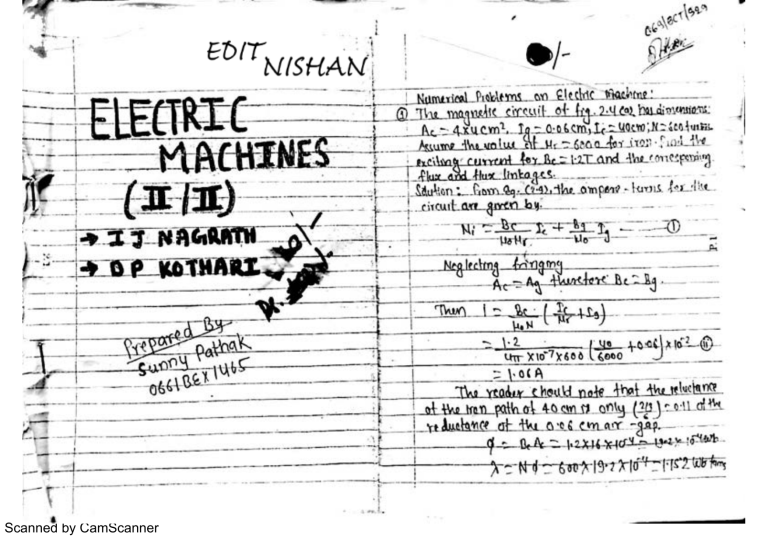 EDIT
NISHAN
ELECTRIC
MACHINES
(II/II)
→ I J NAGRATH
→ D P KOTHARI
Prepared By
Sunny Pathak
066 BEX 1465
069/BCT/529
Numerical Problems on Electric Machine:
① The magnetic circuit of fig. 2.4 (a) has dimensions:
Ac = 4x4 cm², Ig = 0.06cm, Ic = 40cm; N = 600 turns.
Assume the value of Hr = 6000 for iron. Find the
exciting current for Bc = 1.2T and the corresponding
flux and flux linkages.
Solution: From Eq. (2.9), the ampere-turns for the
circuit are given by:
Ni = Bc/HoHr Ic + Bg/Ho Ig — ①
Neglecting fringing
Ac = Ag therefore Bc = Bg.
Then I = Bc/HoN (Ic/Hr + Ig)
= 1.2/4π X10⁻⁷X600 (40/6000 + 0.06) X10⁻² ⑪
= 1.06A
The reader should note that the reluctance
of the iron path of 40 cm is only (2/3)/6 = 0.11 of the
reluctance of the 0.06 cm air-gap.
φ = BcAc = 1.2X16X10⁻⁴ = 19.2 X 10⁻⁴ wb
λ = Nφ = 600X19.2X10⁻⁴ = 1.152 Wb turns
Scanned by CamScanner